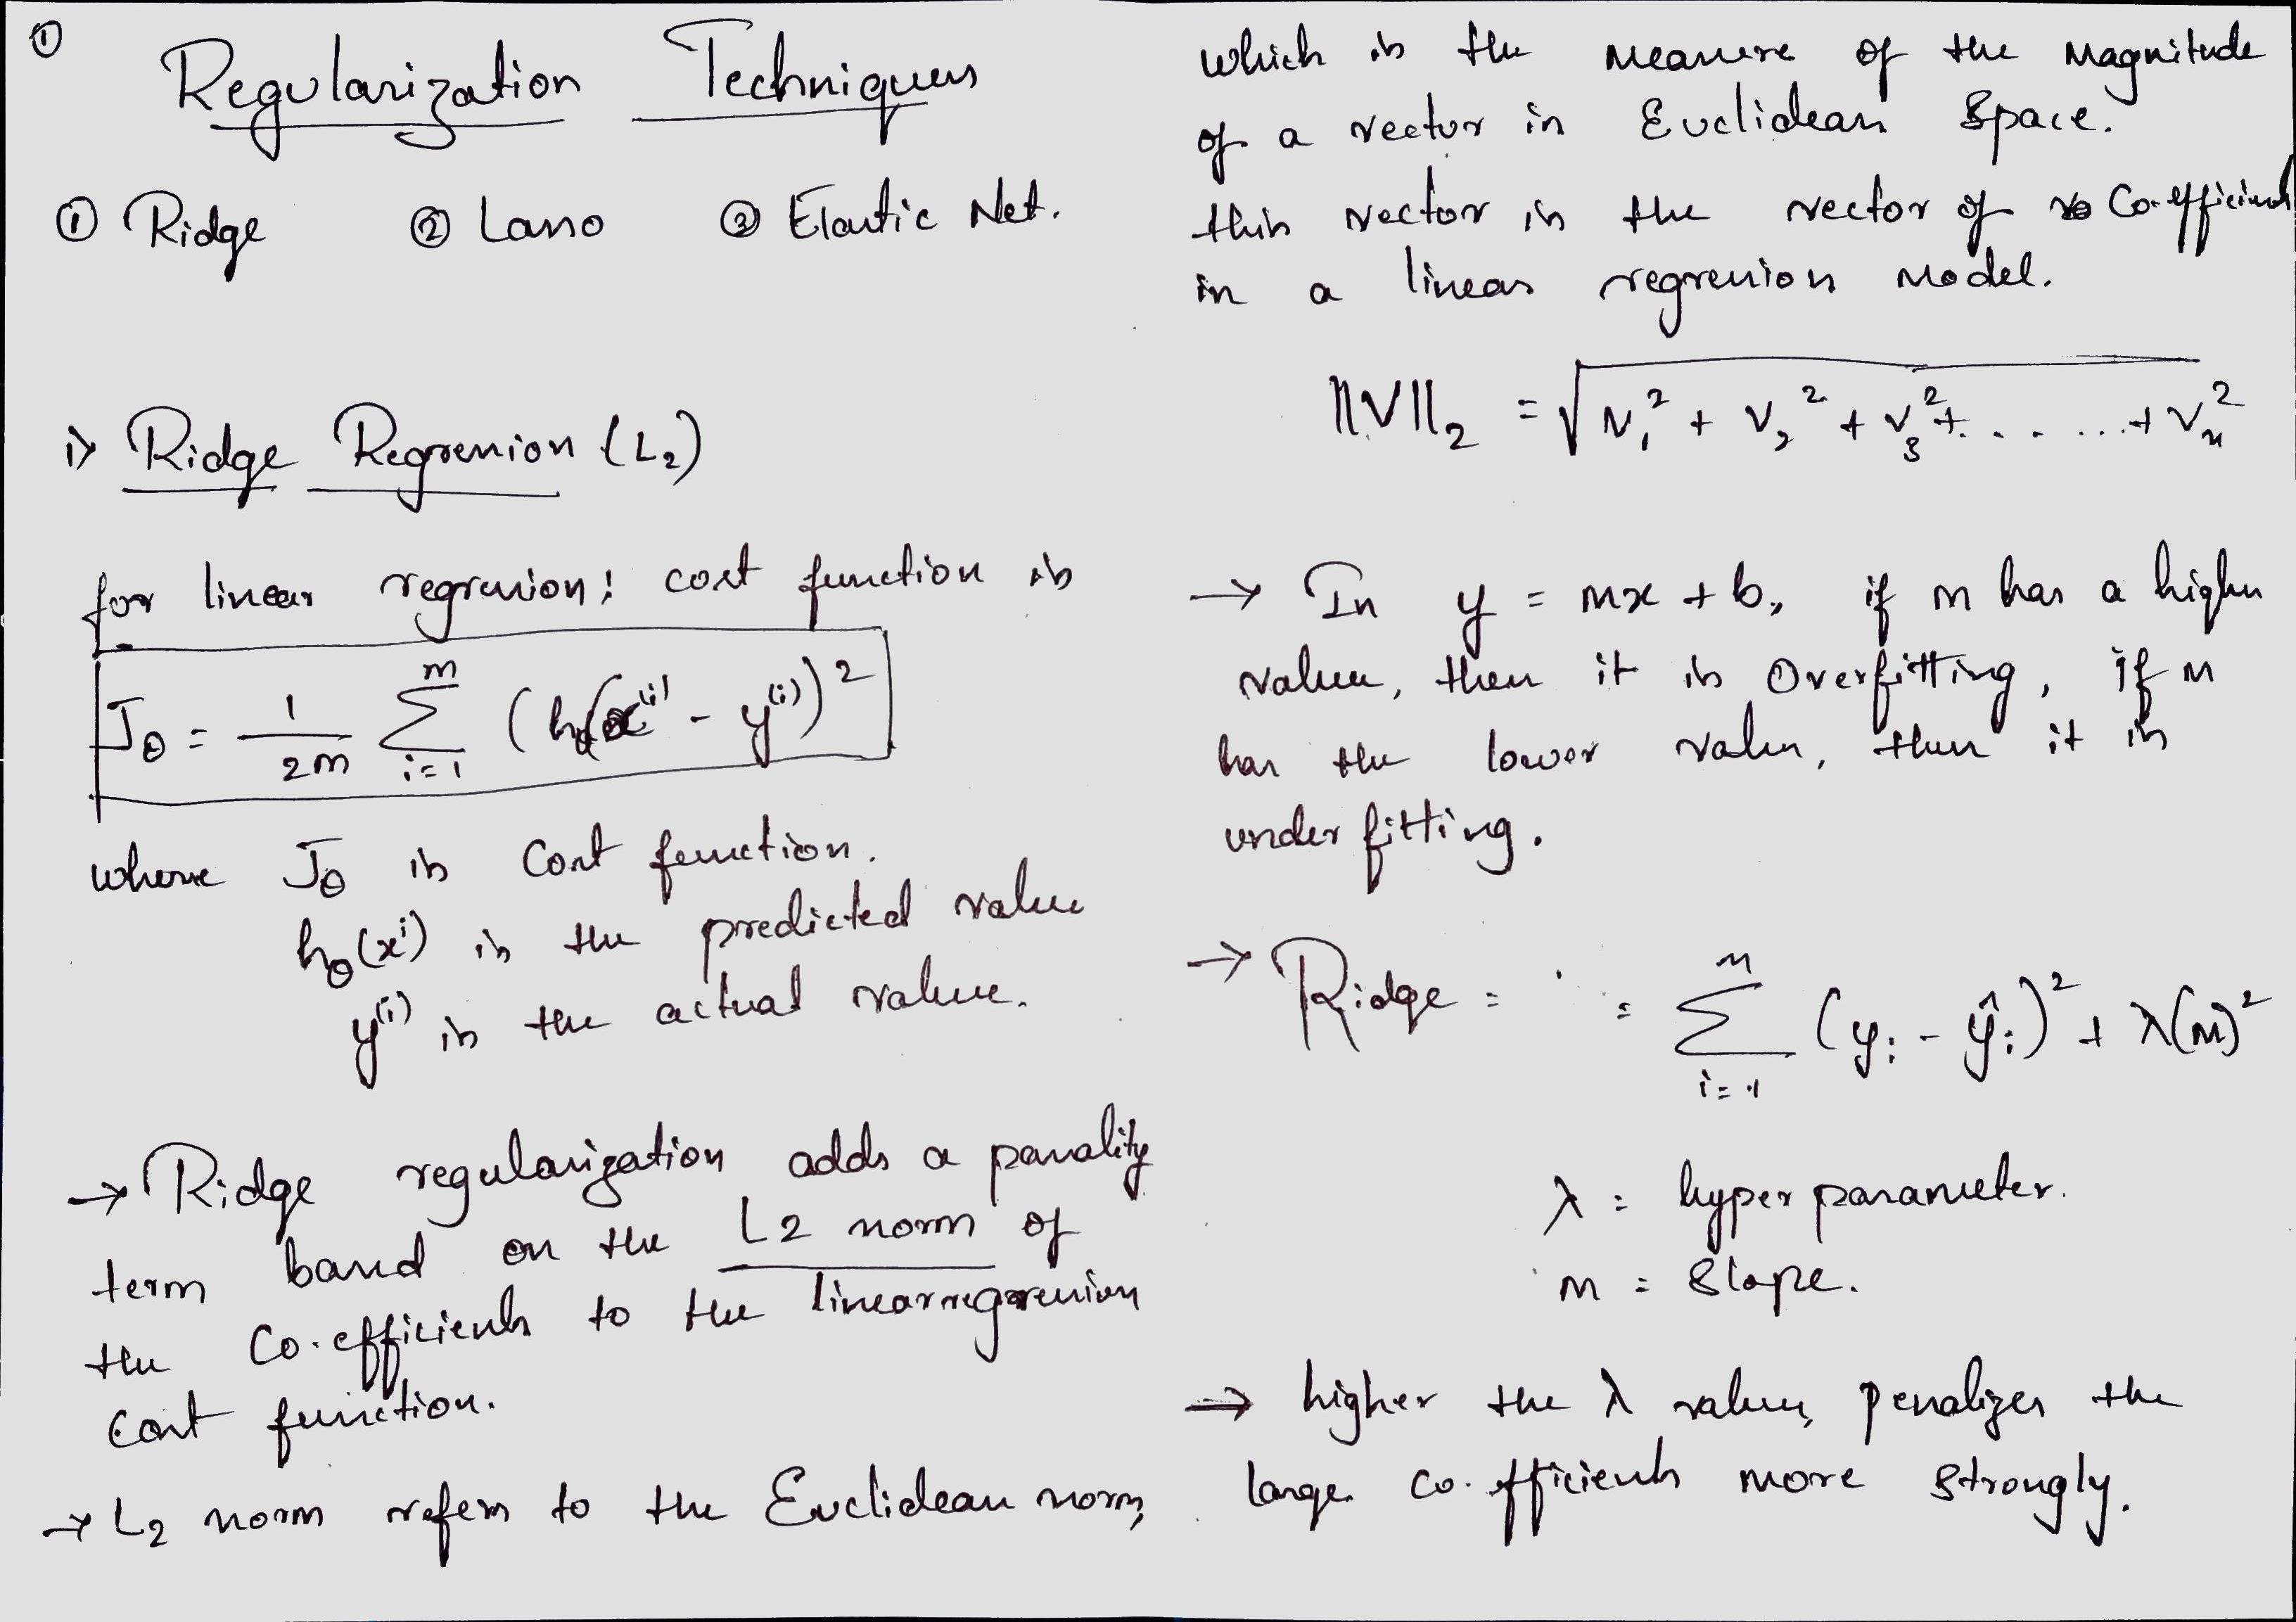 ①
Regularization Techniques
① Ridge ② Lasso ③ Elastic Net.
1> Ridge Regression (L₂)
for linear regression: cost function is
J_θ = 1/2m Σ_{i=1}^{m} (h_θ(x^(i) - y^(i))²
where J_θ is Cost function.
h_θ(x^i) is the predicted value
y^(i) is the actual value.
→ Ridge regularization adds a panality
term based on the L2 norm of
the Co-efficients to the linear regression
cost function.
→ L₂ norm refers to the Euclidean norm,
which is the measure of the magnitude
of a vector in Euclidean Space.
this vector is the vector of Co-efficients
in a linear regression model.
||V||₂ = √(V₁² + V₂² + V₃² + . . . . . . . + Vₙ²
→ In y = mx + b, if m has a higher
value, then it is Overfitting, if m
has the lower value, then it is
under fitting.
→ Ridge = = Σ_{i=1}^{n} (y_i - ŷ_i)² + λ(m)²
λ = hyper parameter.
m = Slope.
→ higher the λ value, penalizes the
large co-efficients more strongly.